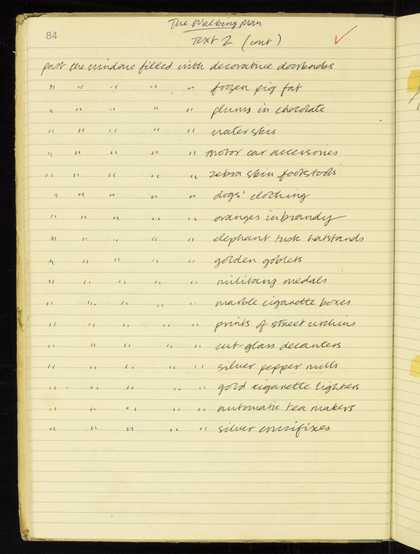 84
The Walking Man
Text 2 (cont) ✓
past the window filled with decorative doorknobs
" " " " " frozen pig fat
" " " " " plums in chocolate
" " " " " water skis
" " " " " motor car accessories
" " " " " zebra skin footstools
" " " " " dogs' clothing
" " " " " oranges in brandy
" " " " " elephant tusk hatstands
" " " " " golden goblets
" " " " " military medals
" " " " " marble cigarette boxes
" " " " " prints of street urchins
" " " " " cut-glass decanters
" " " " " silver pepper mills
" " " " " gold cigarette lighters
" " " " " automatic tea makers
" " " " " silver crucifixes